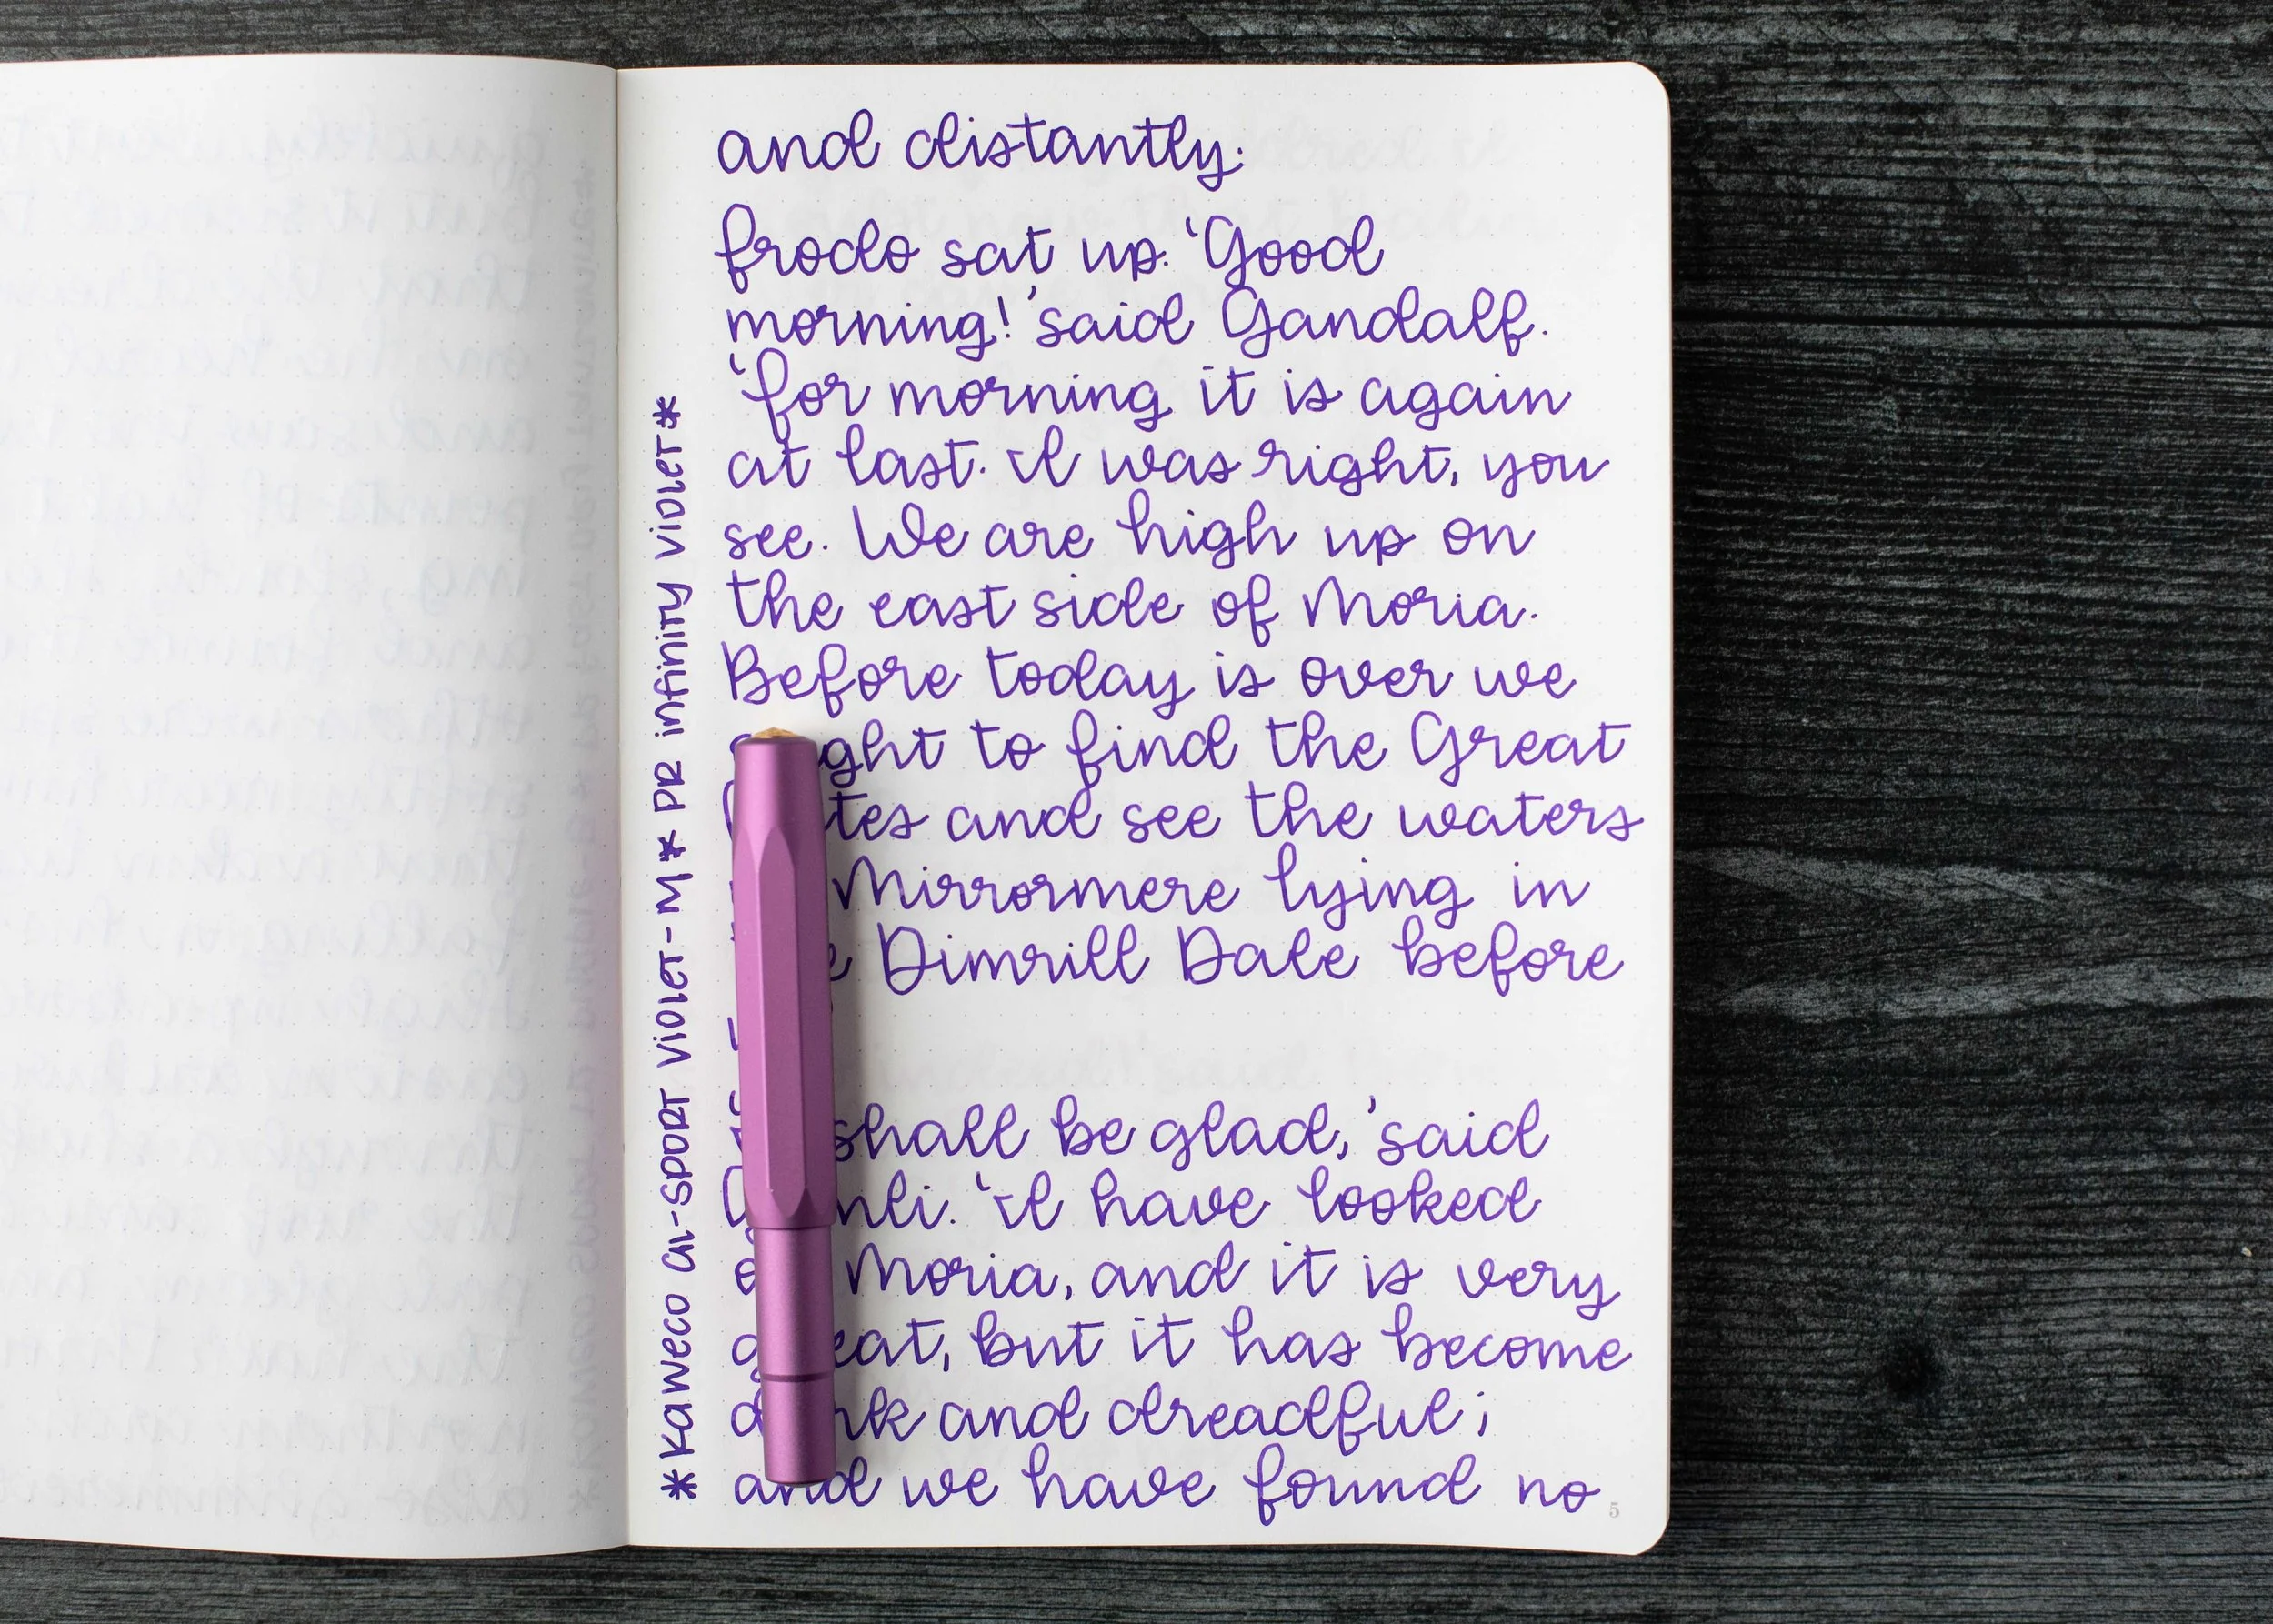 and distantly.
Frodo sat up. 'Good
morning!' said Gandalf.
'For morning it is again
at last. I was right, you
see. We are high up on
the east side of Moria.
Before today is over we
to find the Great
and see the waters
Mirrormere lying in
Dimrill Dale before
shall be glad,' said
'I have looked
Moria, and it is very
great, but it has become
and dreadful;
and we have found no
5
*Kaweco AL-Sport Violet-M* PR Infinity Violet*